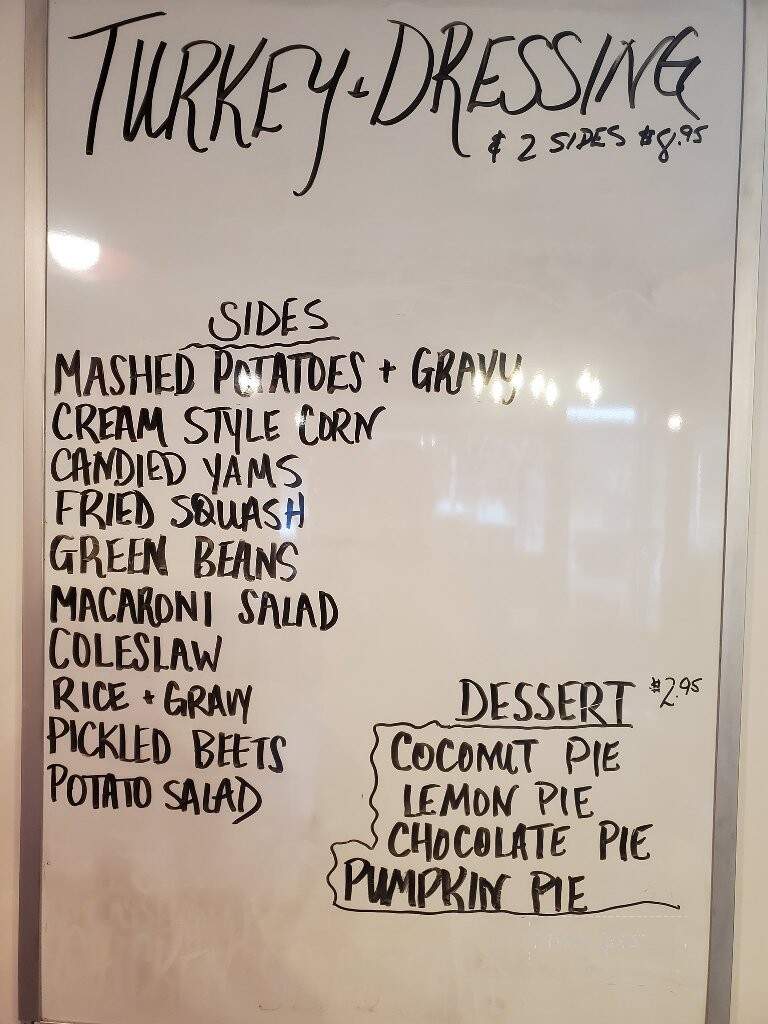 TURKEY + DRESSING
& 2 SIDES $8.95
SIDES
MASHED POTATOES + GRAVY
CREAM STYLE CORN
CANDIED YAMS
FRIED SQUASH
GREEN BEANS
MACARONI SALAD
COLESLAW
RICE + GRAVY
PICKLED BEETS
POTATO SALAD
DESSERT $2.95
COCONUT PIE
LEMON PIE
CHOCOLATE PIE
PUMPKIN PIE